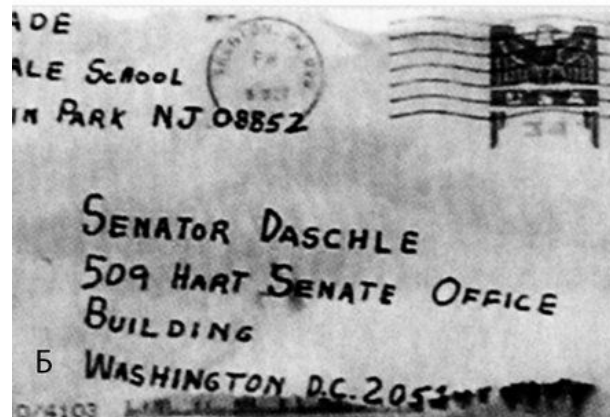 ADE
ALE SCHOOL
PARK NJ 08852
SENATOR DASCHLE
509 HART SENATE OFFICE
BUILDING
Б
WASHINGTON D.C. 2051